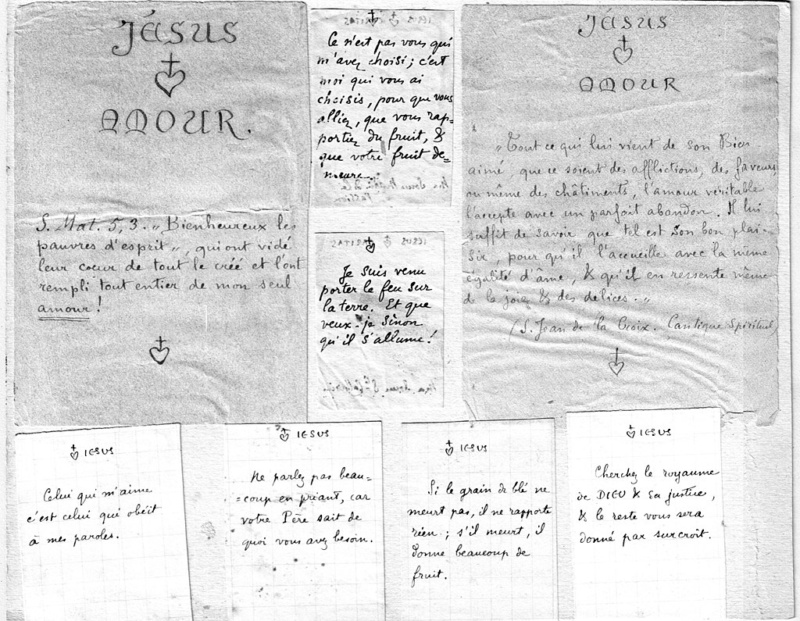 JÉSUS
AMOUR.
S. Mat. 5,3. „ Bienheureux les
pauvres d'esprit „, qui ont vidé
leur cœur de tout le créé et l'ont
rempli tout entier de mon seul
amour !
CARITAS
Ce n'est pas vous qui
m'avez choisi ; c'est
moi qui vous ai
choisis, pour que vous
alliez, que vous rap=
portiez du fruit, &
que votre fruit de=
meure.
IESUS CARITAS
Je suis venu
porter le feu sur
la terre. Et que
veux-je sinon
qu'il s'allume !
JÉSUS
AMOUR
„ Tout ce qui lui vient de son Bien
aimé, que ce soient des afflictions, des faveurs
ou même des châtiments, l'amour véritable
l'accepte avec un parfait abandon. Il lui
suffit de savoir que tel est son bon plai-
sir, pour qu'il l'accueille avec la même
égalité d'âme, & qu'il en ressente même
de la joie & des délices. „
(S. Jean de la Croix. Cantique Spirituel
IESUS
Celui qui m'aime
c'est celui qui obéit
à mes paroles.
IESUS
Ne parlez pas beau=
=coup en priant, car
votre Père sait de
quoi vous avez besoin.
IESUS
Si le grain de blé ne
meurt pas, il ne rapporte
rien ; s'il meurt, il
donne beaucoup de
fruit.
IESUS
Cherchez le royaume
de DIEU & sa justice,
& le reste vous sera
donné par surcroit.